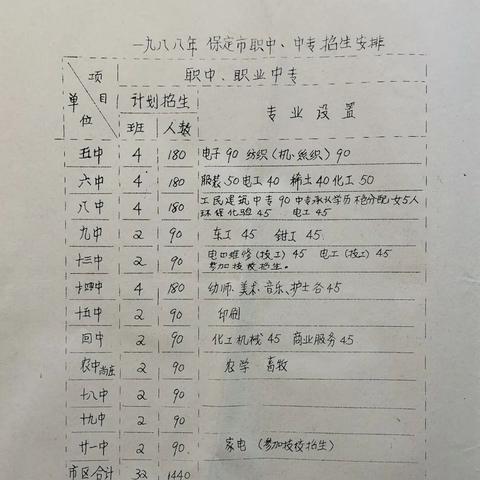 一九八八年 保定市职中、中专招生安排
项目 单位 职中、职业中专
计划招生 专业设置
班 人数
五中 4 180 电子90 纺织(机、丝织)90
六中 4 180 服装50电工40 稀土40化工50
八中 4 180 工民建筑中专90中专承认学历不包分配,女5人
环保化验45 电工45
九中 2 90 车工45 钳工45
十三中 2 90 维修(技工)45 电工(技工)45
参加技校招生。
十四中 4 180 幼师、美术、音乐、护士各45
十五中 2 90 印刷
回中 2 90 化工机械45 商业服务45
农中 2 90 农学 畜牧
十八中 2 90
十九中 2 90
廿一中 2 90 家电 (参加技校招生)
市区合计 32 1440